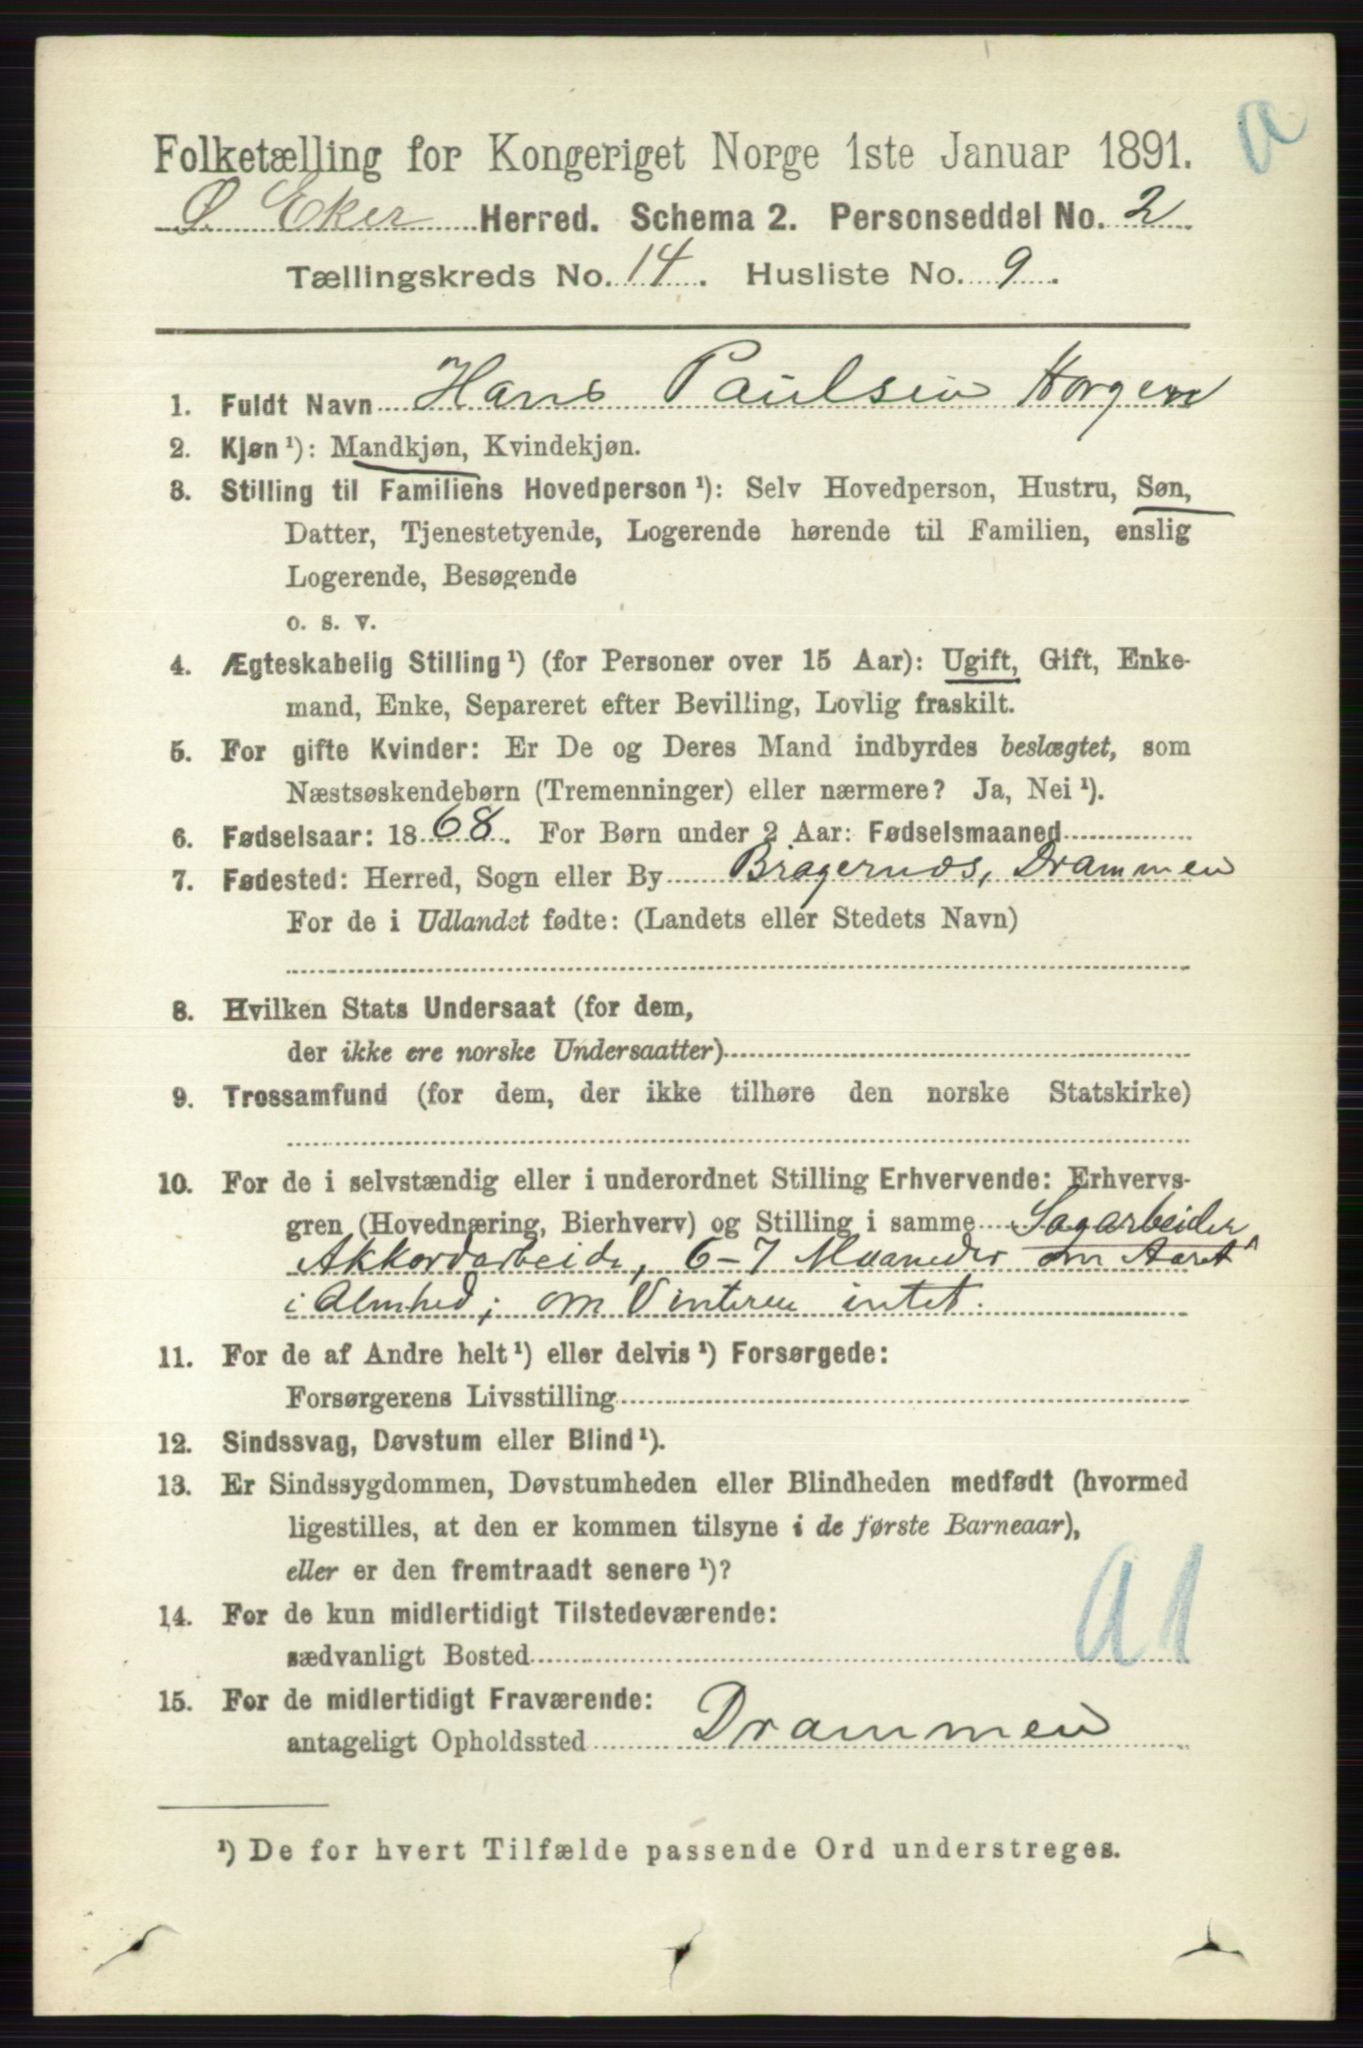 a
Folketælling for Kongeriget Norge 1ste Januar 1891.
Ø. Eker Herred. Schema 2. Personseddel No. 2
Tællingskreds No. 14. Husliste No. 9.
1. Fuldt Navn Hans Paulsen Horgen
2. Kjøn ¹): Mandkjøn, Kvindekjøn.
3. Stilling til Familiens Hovedperson ¹): Selv Hovedperson, Hustru, Søn,
Datter, Tjenestetyende, Logerende hørende til Familien, enslig
Logerende, Besøgende
o. s. v.
4. Ægteskabelig Stilling ¹) (for Personer over 15 Aar): Ugift, Gift, Enke-
mand, Enke, Separeret efter Bevilling, Lovlig fraskilt.
5. For gifte Kvinder: Er De og Deres Mand indbyrdes beslægtet, som
Næstsøskendebørn (Tremenninger) eller nærmere? Ja, Nei ¹).
6. Fødselsaar: 1868. For Børn under 2 Aar: Fødselsmaaned
7. Fødested: Herred, Sogn eller By Bragernæs, Drammen
For de i Udlandet fødte: (Landets eller Stedets Navn)
8. Hvilken Stats Undersaat (for dem,
der ikke ere norske Undersaatter)
9. Trossamfund (for dem, der ikke tilhøre den norske Statskirke)
10. For de i selvstændig eller i underordnet Stilling Erhvervende: Erhvervs-
gren (Hovednæring, Bierhverv) og Stilling i samme Sagarbeider
Akkordarbeide, 6-7 Maaneder om Aaret
i; om Vinteren intet.
11. For de af Andre helt ¹) eller delvis ¹) Forsørgede:
Forsørgerens Livsstilling
12. Sindssvag, Døvstum eller Blind ¹).
13. Er Sindssygdommen, Døvstumheden eller Blindheden medfødt (hvormed
ligestilles, at den er kommen tilsyne i de første Barneaar),
eller er den fremtraadt senere ¹)?
14. For de kun midlertidigt Tilstedeværende:
sædvanligt Bosted
A1
15. For de midlertidigt Fraværende:
antageligt Opholdssted Drammen
¹) De for hvert Tilfælde passende Ord understreges.